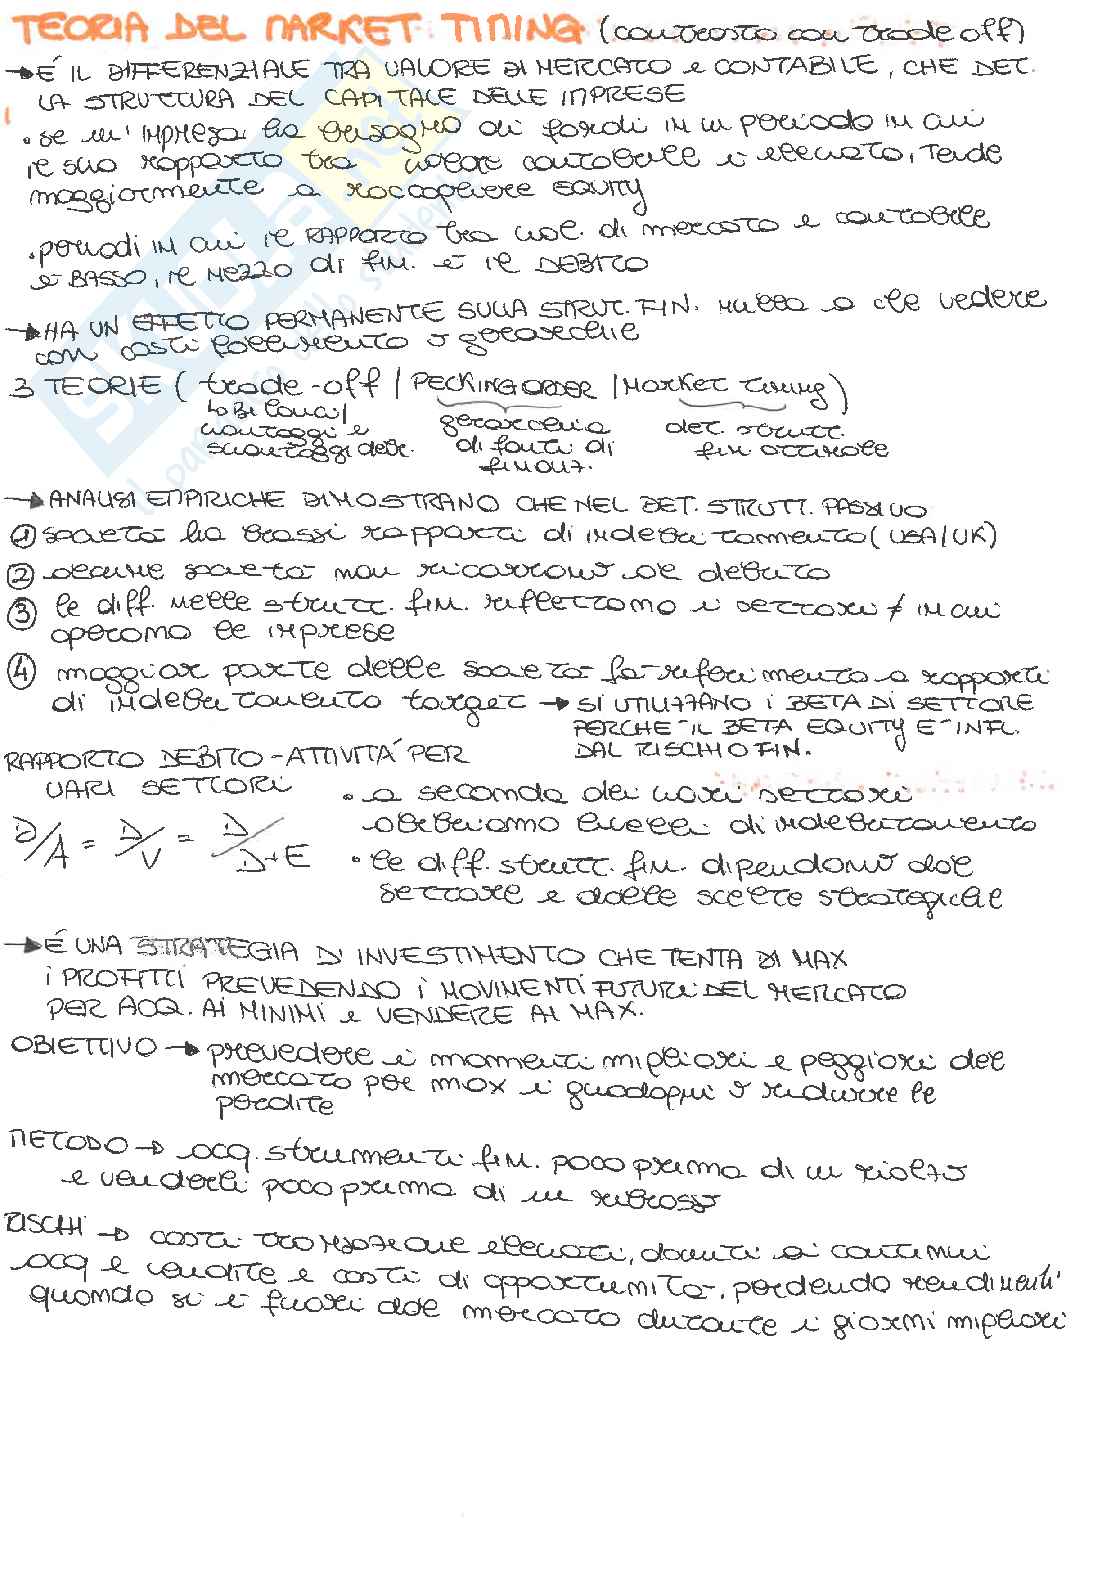 TEORIA DEL MARKET TIMING (contrasto con trade off)
→ È IL DIFFERENZIALE TRA VALORE DI MERCATO e CONTABILE, CHE DET.
LA STRUTTURA DEL CAPITALE DELLE IMPRESE
• se un'IMPRESA ha bisogno di fondi IN un periodo IN cui
il suo rapporto tra valore contabile è elevato, Tende
maggiormente a raccogliere EQUITY
• periodi IN cui il RAPPORTO tra val. di mercato e contabile
è BASSO, il MEZZO di fin. è il DEBITO
→ HA UN EFFETTO PERMANENTE SULLA STRUT. FIN. nulla a che vedere
con costi fallimento o gerarchie
3 TEORIE ( trade-off / PECKING ORDER / Market timing )
↳ Bilancia
vantaggi e
svantaggi deb.
gerarchia
di fonti di
finanz.
det. strutt.
fin. ottimale
→ ANALISI EMPIRICHE DIMOSTRANO CHE NEL DET. STRUTT. PASSIVO
① società ha bassi rapporti di indebitamento (USA/UK)
② alcune società non ricorrono al debito
③ le diff. nelle strutt. fin. riflettono i settori ≠ in cui
operano le imprese
④ maggior parte delle società fa riferimento a rapporti
di indebitamento target → SI UTILIZZANO i BETA DI SETTORE
PERCHÈ IL BETA EQUITY È INFL.
DAL RISCHIO FIN.
RAPPORTO DEBITO-ATTIVITÀ PER
VARI SETTORI
D/A = D/V = D/D+E
• a seconda dei vari settori
abbiamo livelli di indebitamento
• le diff. strutt. fin. dipendono dal
settore e dalle scelte strategiche
→ È UNA STRATEGIA DI INVESTIMENTO CHE TENTA DI MAX
i PROFITTI PREVEDENDO i MOVIMENTI FUTURI DEL MERCATO
PER ACQ. AI MINIMI e VENDERE AI MAX.
OBIETTIVO → prevedere i momenti migliori e peggiori del
mercato per max i guadagni o ridurre le
perdite
METODO → acq. strumenti fin. poco prima di un rialzo
e venderli poco prima di un ribasso
RISCHI → costi transazione elevati, dovuti ai continui
acq e vendite e costi di opportunità, perdendo rendimenti
quando si è fuori dal mercato durante i giorni migliori